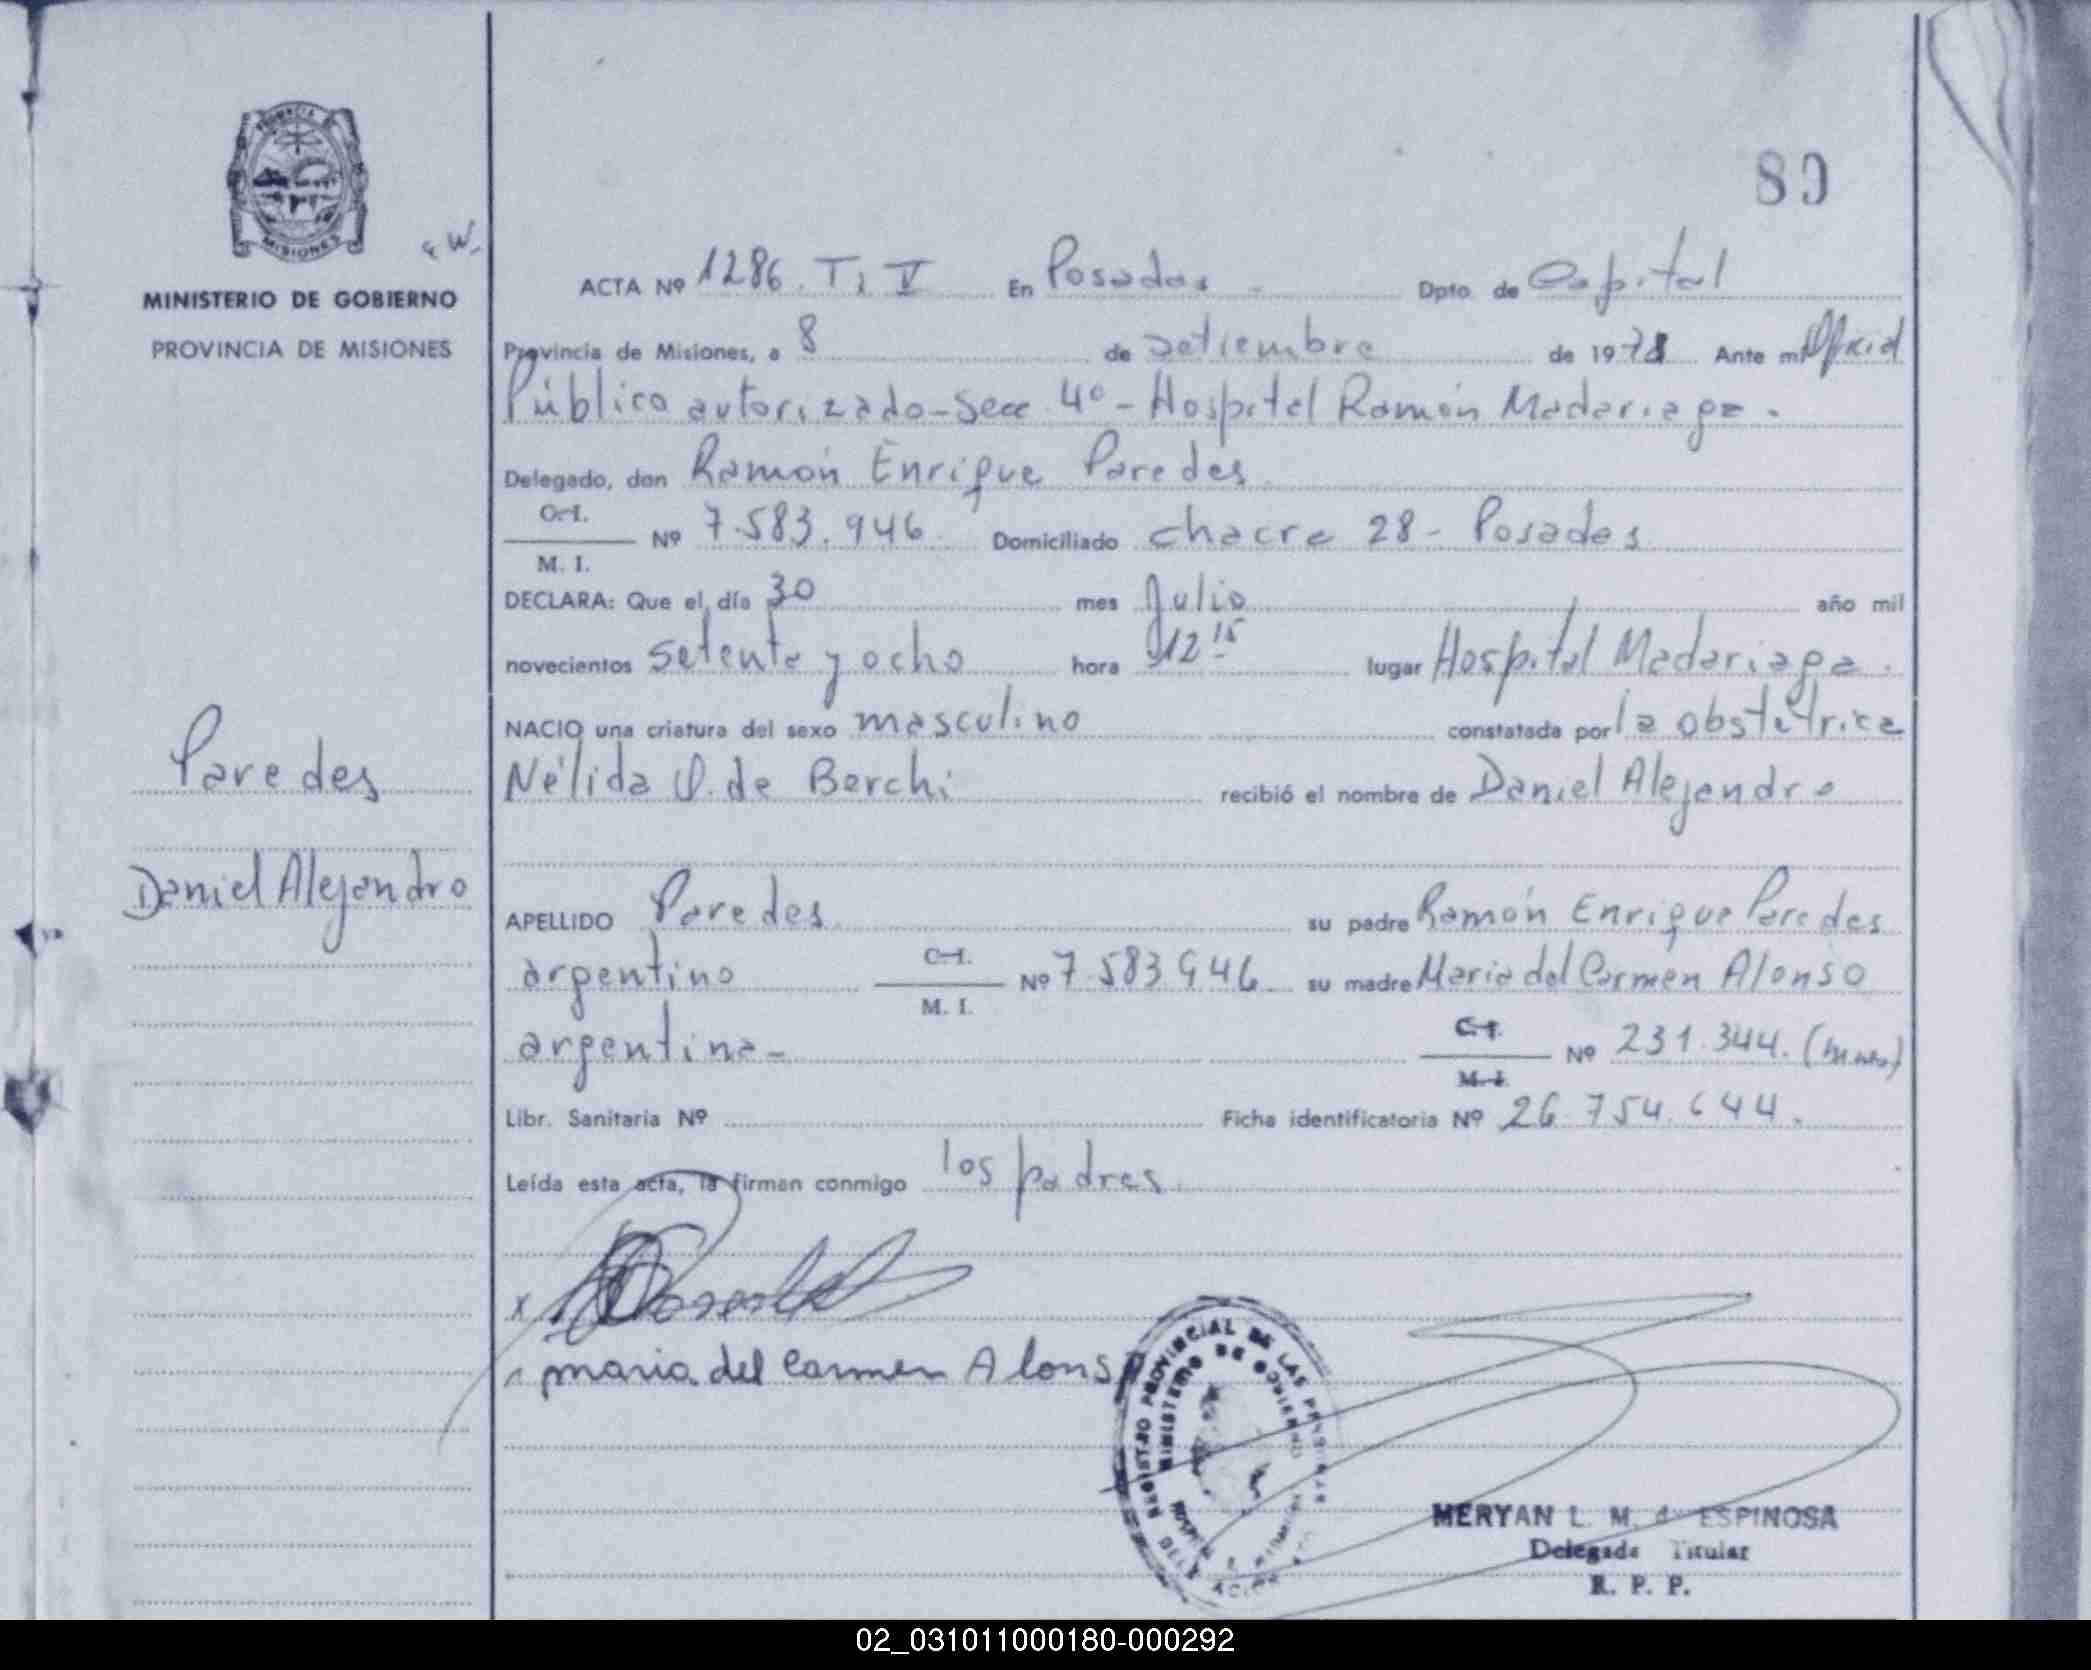 80
MINISTERIO DE GOBIERNO
PROVINCIA DE MISIONES
ACTA Nº 1286. T. V En Posadas Dpto. de Capital
Provincia de Misiones, a 8 de setiembre de 1978 Ante mi Oficial
Público autorizado - Secc 4º - Hospital Ramón Madariaga.
Delegado, don Ramón Enrique Paredes
C.I.
M. I. Nº 7.583.946 Domiciliado chacra 28 - Posadas
DECLARA: Que el día 30 mes Julio año mil
novecientos setenta y ocho hora 12 15 lugar Hospital Madariaga.
NACIO una criatura del sexo masculino constatada por la obstetrica
Nélida O. de Berchi recibió el nombre de Daniel Alejandro
Paredes
Daniel Alejandro
APELLIDO Paredes su padre Ramón Enrique Paredes
argentino C.I. M. I. Nº 7.583.946 su madre Maria del Carmen Alonso
argentina - C.I. M. I. Nº 231.344.
Libr. Sanitaria Nº Ficha identificatoria Nº 26.754.644.
Leída esta acta, la firman conmigo los padres
x
maria del Carmen Alonso
REGISTRO PROVINCIAL DE LAS PERSONAS
MINISTERIO DE GOBIERNO
MERYAN L. M. de ESPINOSA
Delegada Titular
R. P. P.
02_031011000180-000292